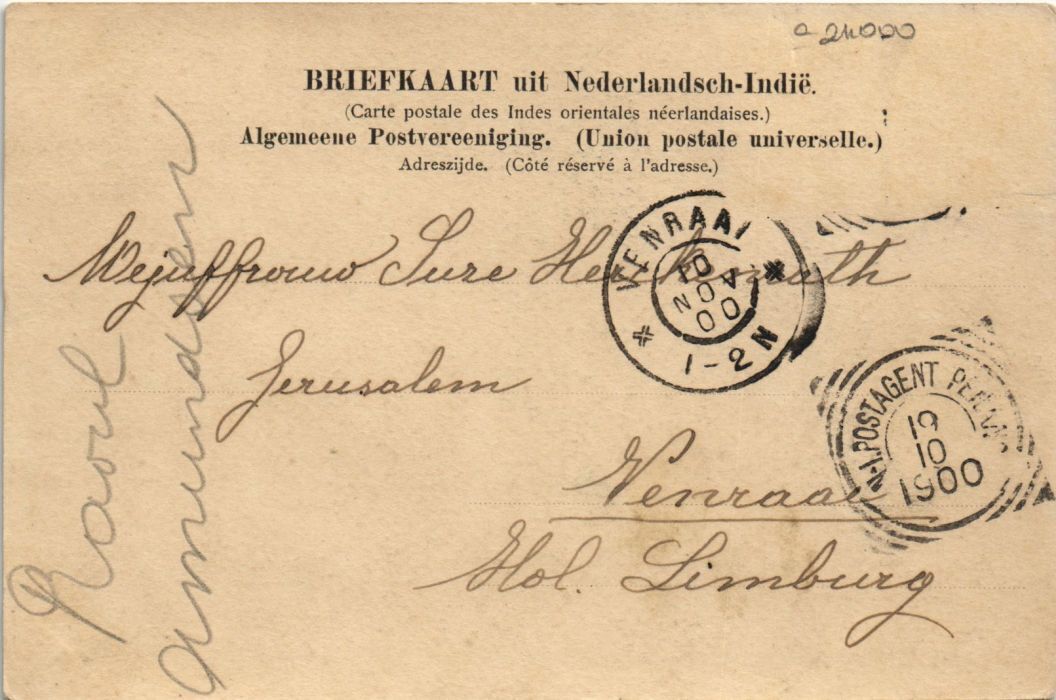 a 21000
BRIEFKAART uit Nederlandsch-Indië.
(Carte postale des Indes orientales néerlandaises.)
Algemeene Postvereeniging. (Union postale universelle.)
Adreszijde. (Côté réservé à l'adresse.)
Mejuffrouw Suze
Jerusalem
Venraai
Hol. Limburg
VENRAAI
10
NOV
00
1-2N
N-I. POSTAGENT PENANG
19
10
1900
Raoul
Amundsen